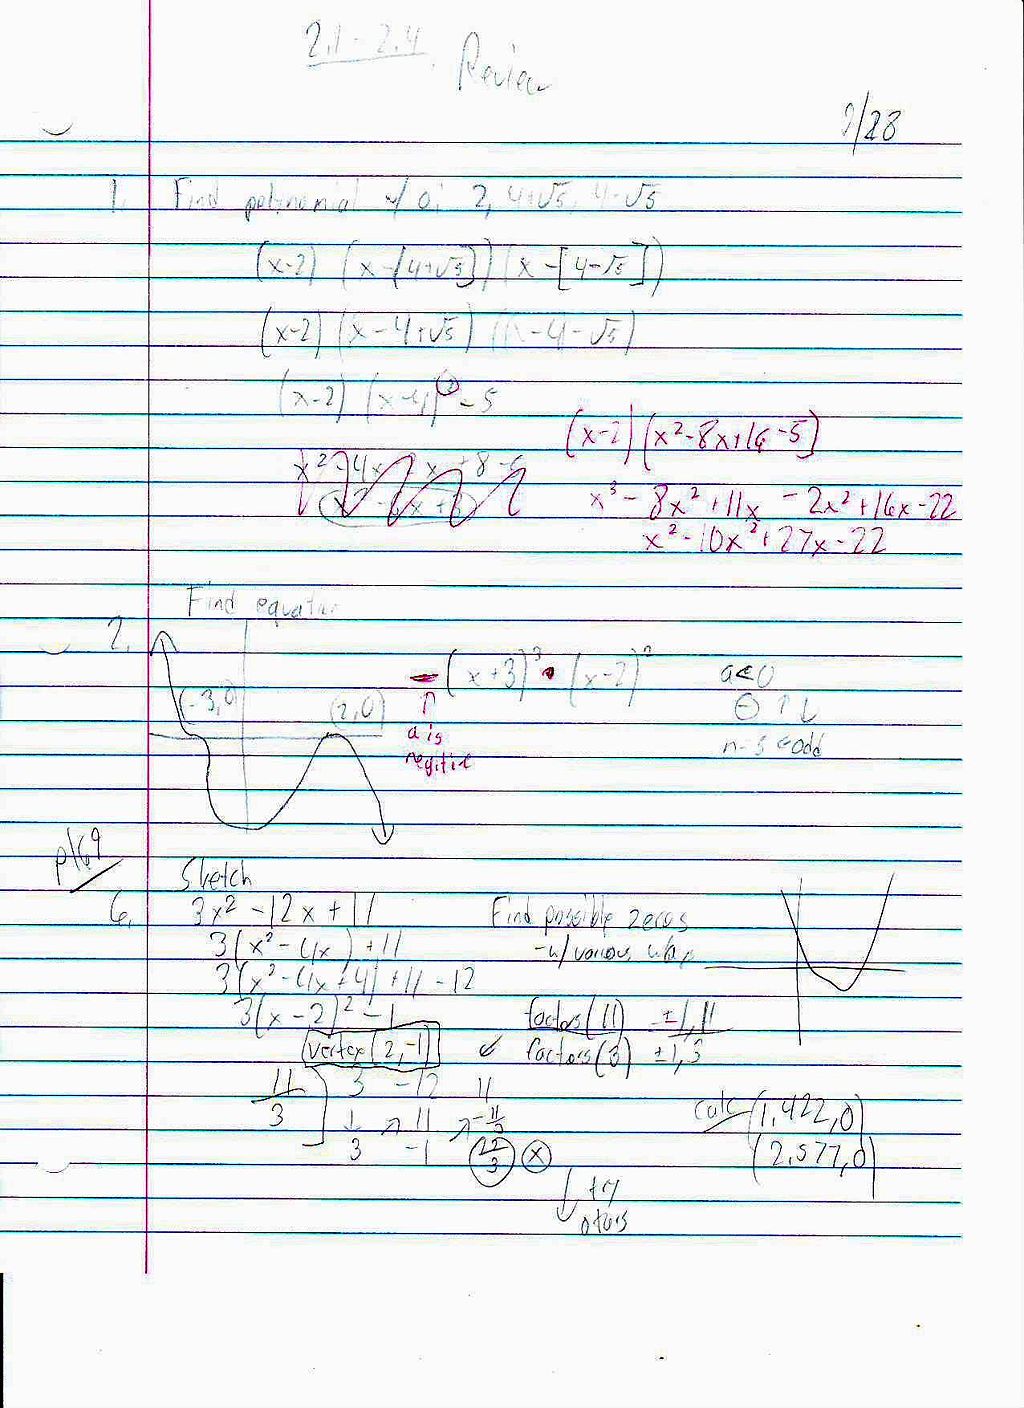 2.1 - 2.4
Review
9/28
1. Find polinomial w/ 0: 2, 4+√5, 4-√5
(x-2) (x-[4+√5]) (x-[4-√5])
(x-2) (x-4+√5) (x-4-√5)
(x-2) (x-4)² - 5
(x-2) (x²-8x+16-5)
x³ - 8x² + 11x - 2x² + 16x - 22
x² - 10x² + 27x - 22
2. Find equation
(-3,0)
(2,0)
- (x+3)³ • (x-2)²
↑
a is
negitie
a<0
⊖ ↑ ↓
n=5 ← odd
p169
6. Sketch
3x² - 12x + 11
3(x² - 4x ) + 11
3(x² - 4x + 4) + 11 - 12
3(x - 2)² - 1
vertex (2,-1)
Find possible zeros
- w/ various
factors (11) ±1, 11
factors (3) ±1, 3
11/3 3 -12 11
↓ ↗ 11 ↗ -11/3
3 -1 22/3 x
calc (1.422, 0)
(2.577, 0)
↓ try